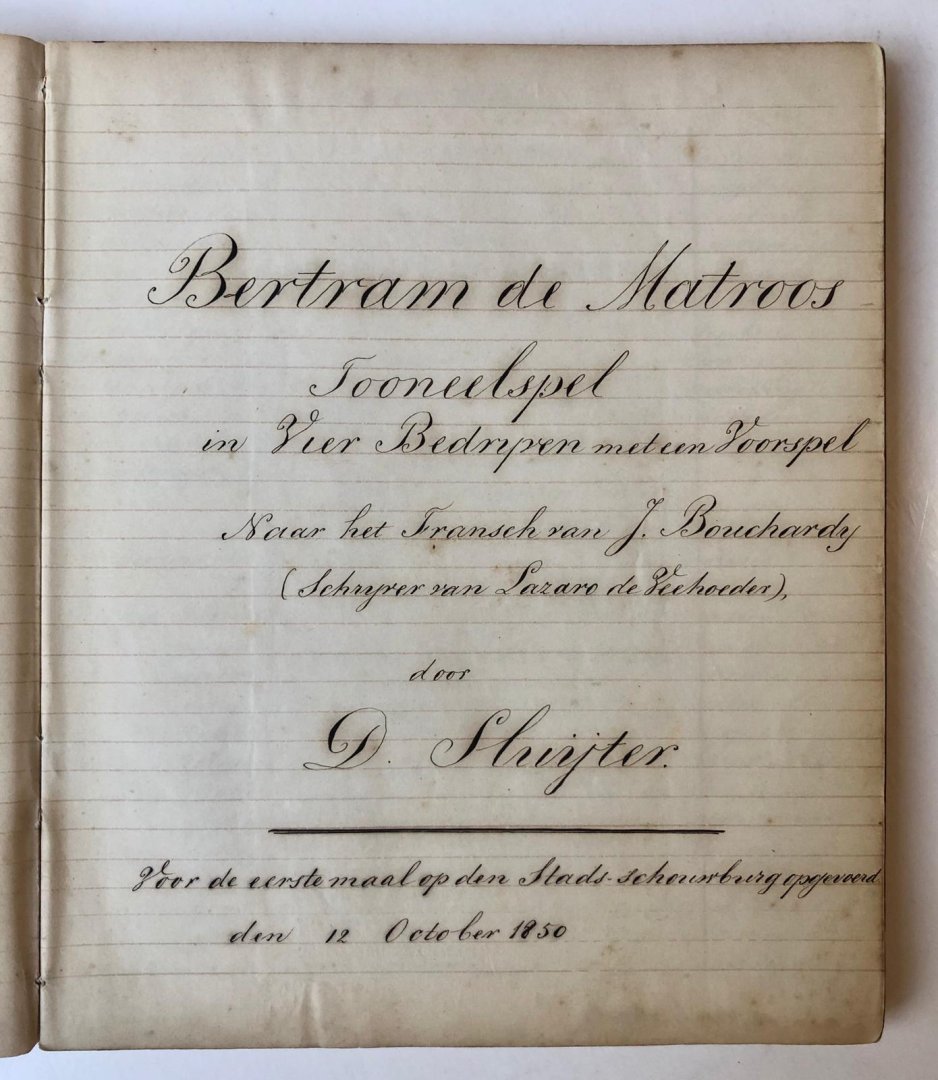 Bertram de Matroos
Tooneelspel
in Vier Bedrijven met een Voorspel
Naar het Fransch van J. Bouchardy
(Schrijver van Lazaro de Veehoeder),
door
D. Sluijter.
Voor de eerste maal op den Stads-schouwburg opgevoerd
den 12 October 1850